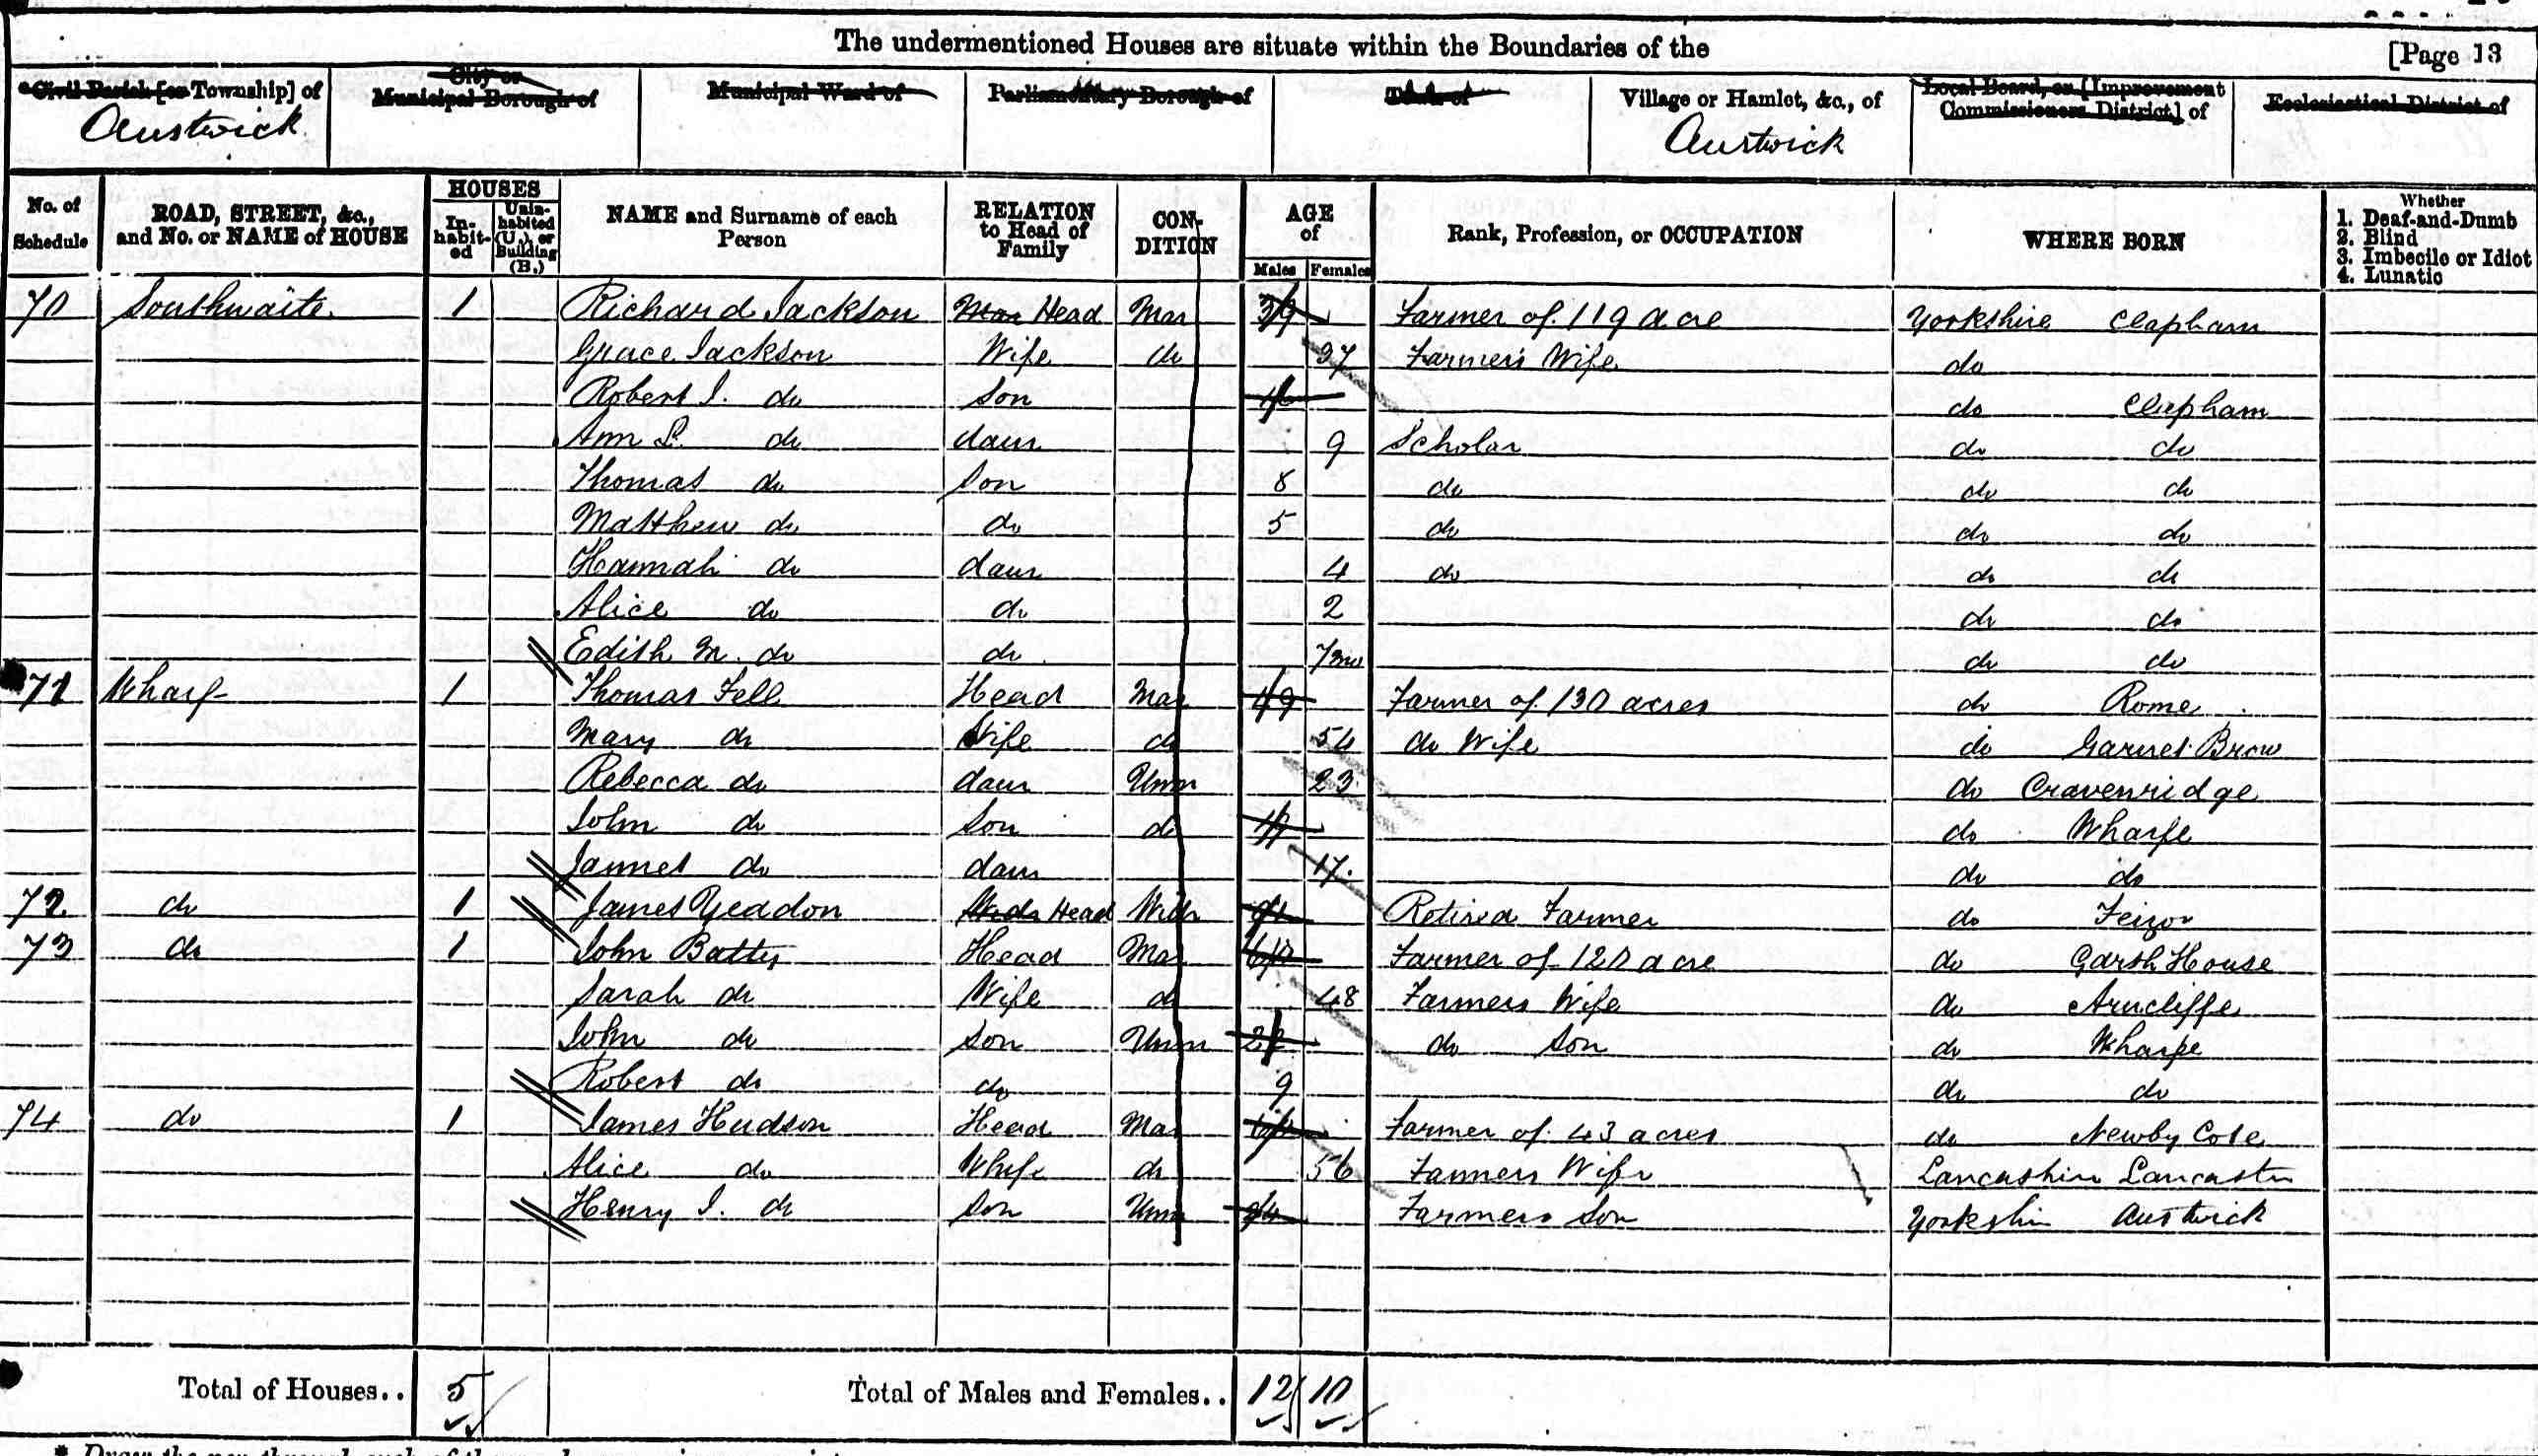 The undermentioned Houses are situate within the Boundaries of the [Page 13
Civil Parish [or Township] of City or Municipal Borough of Municipal Ward of Parliamentary Borough of Town of Village or Hamlet, &c., of Local Board, or [Improvement Commissioners District] of Ecclesiastical District of
Austwick Austwick
No. of Schedule ROAD, STREET, &c., and No. or NAME of HOUSE HOUSES In-habit-ed Unin-habited (U.), or Building (B.) NAME and Surname of each Person RELATION to Head of Family CON-DITION AGE of Males Females Rank, Profession, or OCCUPATION WHERE BORN Whether 1. Deaf-and-Dumb 2. Blind 3. Imbecile or Idiot 4. Lunatic
70 Southwaite 1 Richard Jackson Head Mar 39 Farmer of 119 acre Yorkshire Clapham
Grace Jackson Wife do 37 Farmer's Wife do
Robert I. do Son do Clapham
Ann L. do daur 9 Scholar do do
Thomas do Son 8 do do do
Matthew do do 5 do do do
Hannah do daur 4 do do do
Alice do do 2 do do
Edith M. do do 7mo do do
71 Wharf 1 Thomas Fell Head Mar 49 Farmer of 130 acres do Rome
Mary do Wife do 54 do Wife do Garnet Brow
Rebecca do daur Unm 23 do Cravenridge
John do Son do do Wharfe
Jannet do daur 17 do do
72 do 1 James Yeadon Head Widr Retired Farmer do Feizor
73 do 1 John Batty Head Mar Farmer of 120 acre do Garsh House
Sarah do Wife do 48 Farmers Wife do Arncliffe
John do Son Unm do Son do Wharfe
Robert do do 9 do do
74 do 1 James Hudson Head Mar Farmer of 43 acres do Newby Cote
Alice do Whife do 56 Farmers Wife Lancashire Lancaster
Henry I. do Son Unm 24 Farmers Son Yorkshire Austwick
Total of Houses.. 5 Total of Males and Females.. 12 10